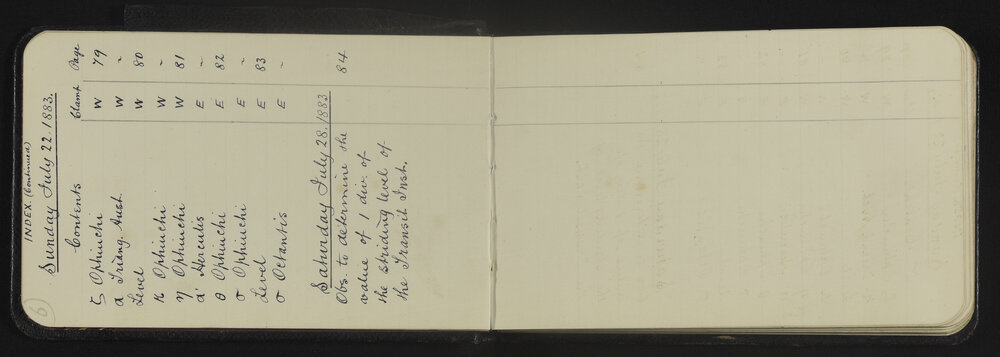 6
INDEX. (Continued)
Sunday July 22. 1883.
Contents Clamp Page
ζ Ophiuchi W 79
α Triang. Aust. W "
Level W 80
κ Ophiuchi W "
η Ophiuchi W 81
α' Herculis E "
θ Ophiuchi E 82
σ Ophiuchi E "
Level E 83
σ Octantis E "
Saturday July 28. 1883
Obs. to determine the 84
value of 1 div. of
the striding level of
the Transit Inst.